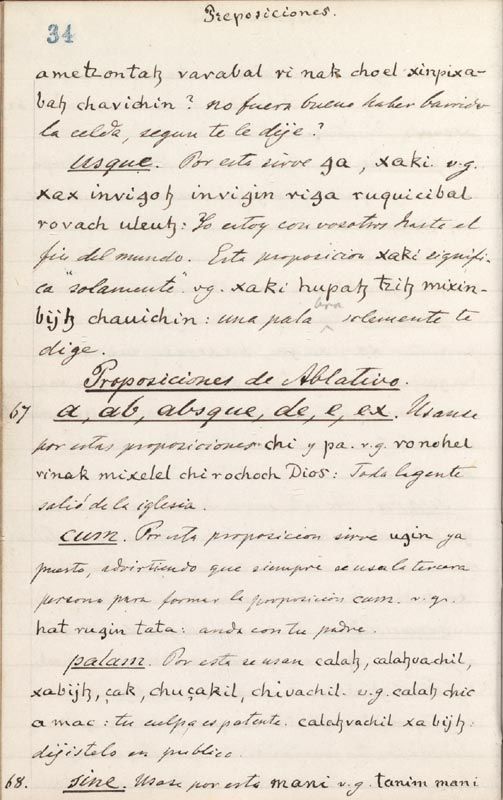 Preposiciones.
34
ametꜩontaꜩ varabal ri nak choel xinpixa-
baꜩ chavichin? no fuera bueno haber barrido
la celda, segun te le dije?
usque. Por esta sirve ga, xaki v.g.
xax invigoꜩ invigin riga ruquicibal
rovach uleuꜩ: Yo estoy con vosotros hasta el
fin del mundo. Esta proposicion xaki signifi-
ca "solamente". vg. xaki hupaꜩ tꜩiꜩ mixin-
bijꜩ chauichin: una palabra solemente te
dige.
Proposiciones de Ablativo.
67 a, ab, absque, de, e, ex. Usanse
por estas proposiciones chi y pa. v.g. ronohel
vinak mixelel chi rochoch Dios: Toda la gente
salió de la iglesia.
cum. Por esta proposicion sirve ugin ya
puesto, advirtiendo que siempre se usa la tercera
persona para formar la proposición cum. v.g.
hat rugin tata: anda con tu padre.
palam. Por esta se usan calaꜩ, calaꜩvachil,
xabijꜩ, çak, chuçakil, chivachil. v.g. calaꜩ chic
a mac: tu culpa es patente. calaꜩvachil xa bijꜩ:
dijistelo en publico.
68. sine. Usase por esta mani v.g. tanim mani